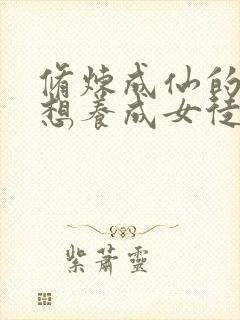 脩煉成仙的
想養成女徒
紫蕭靈